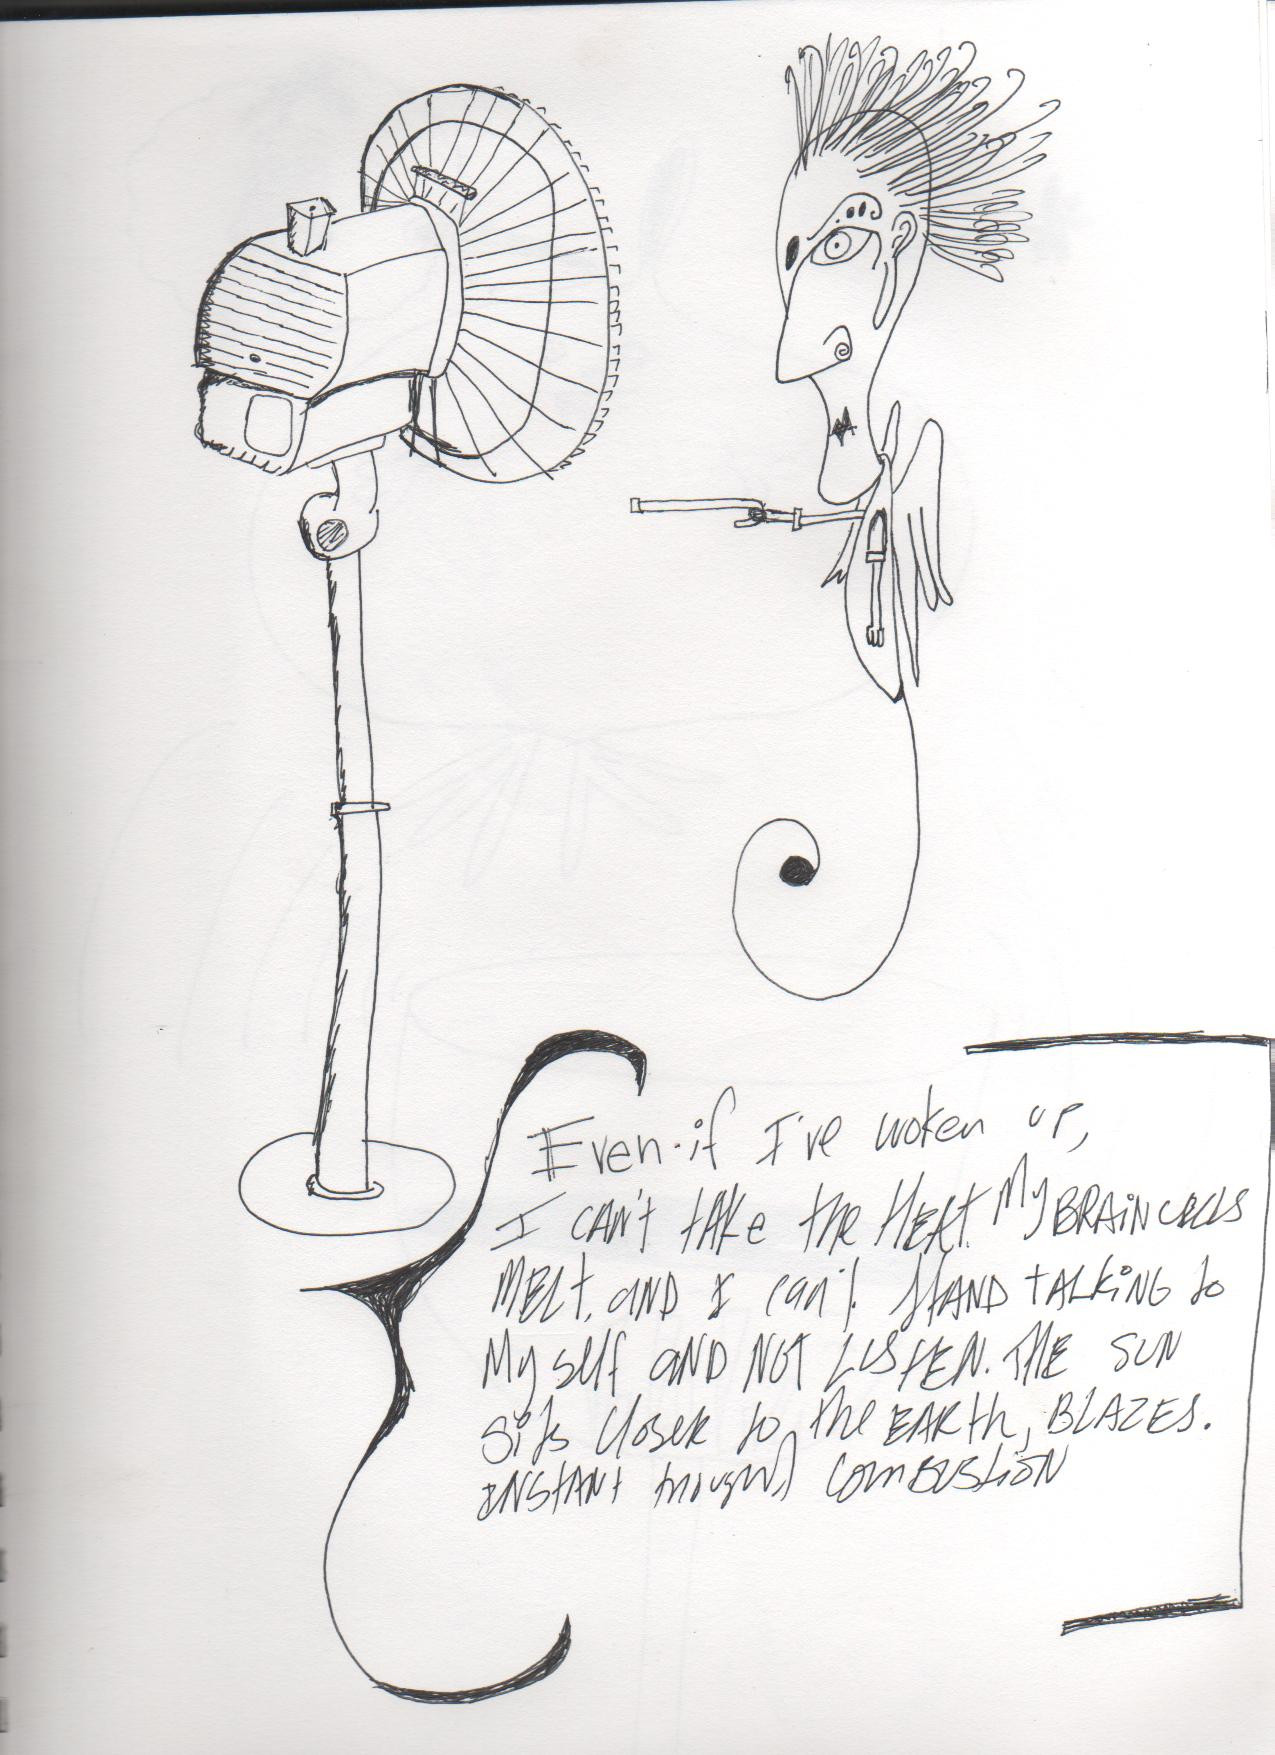 Even if I've woken up,
I CAN't tAKe the HEAT. My BRAiN CELLS
MELT. aND I can't StAND tALKiNG to
Myself aND NOT LISTEN. THE SUN
Sits Closer to the EARth, BLAZES.
INStANt thought COMBUStiON